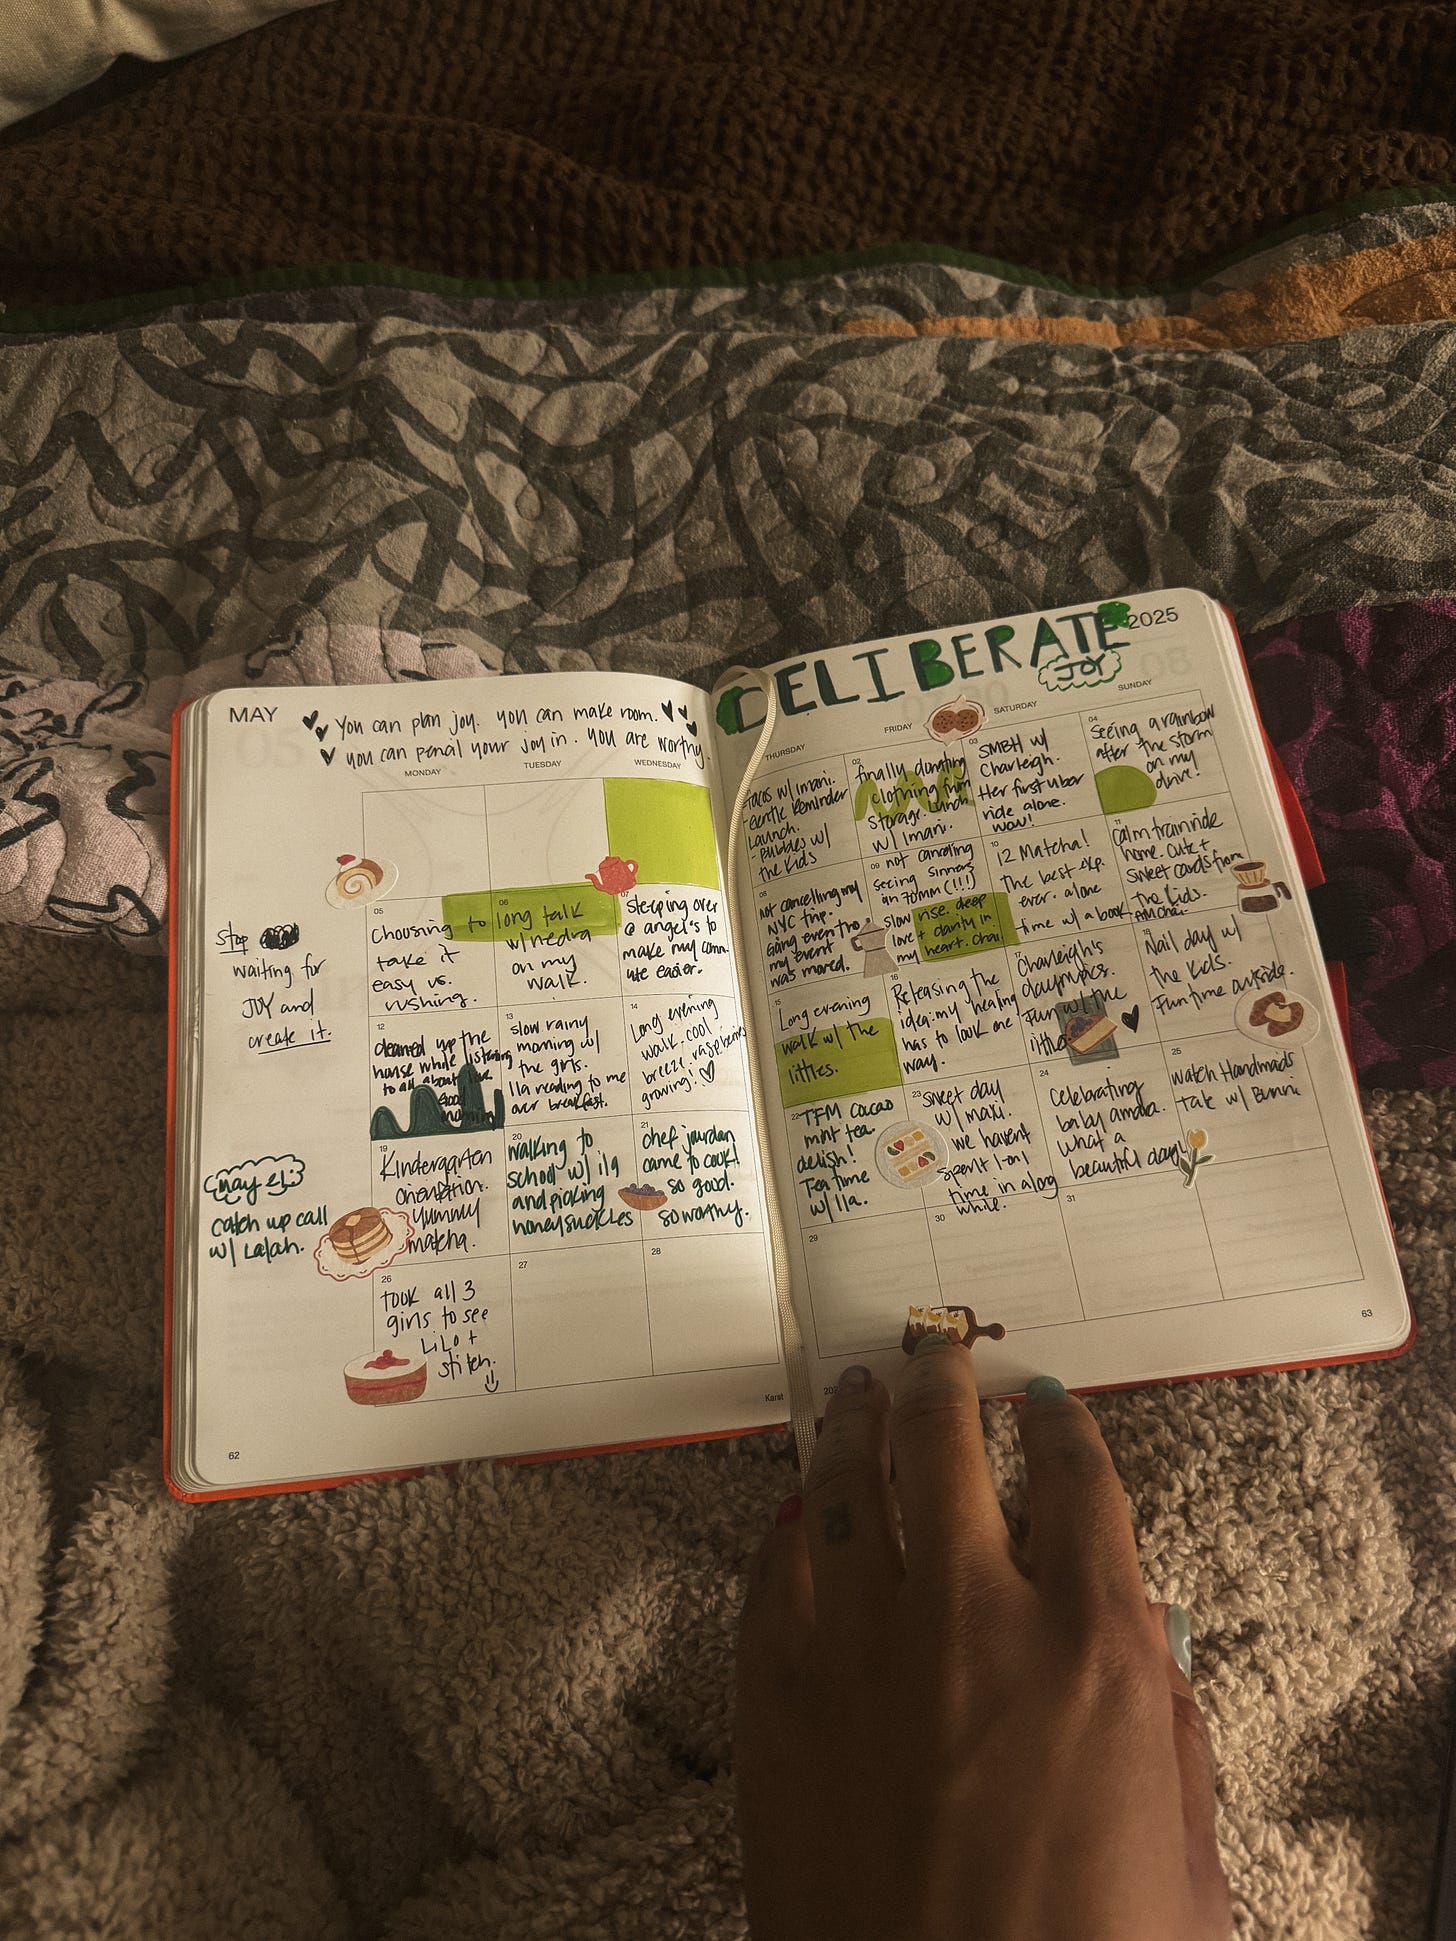 MAY
You can plan joy. you can make room.
you can pencil your joy in. you are worthy.
MONDAY
TUESDAY
WEDNESDAY
Stop
waiting for
JOY and
create it.
05
Choosing to
take it
easy vs.
rushing.
06
long talk
w/ nedra
on my
walk.
07
Sleeping over
@ angel's to
make my comm-
ute easier.
12
cleaned up the
house while listening
to all about love
Good
morning
13
slow rainy
morning w/
the girls.
Ila reading to me
over breakfast.
14
Long evening
walk. cool
breeze. raspberries
growing!
may 21:
catch up call
w/ Lalah.
19
Kindergarten
orientation.
yummy
matcha.
20
walking to
school w/ ila
and picking
honeysuckles
21
chef jourdan
came to cook!
so good.
so worthy.
26
took all 3
girls to see
LiLo +
stitch.
27
28
62
Karst
DELIBERATE
JOY
2025
THURSDAY
FRIDAY
SATURDAY
SUNDAY
Tacos w/ Imani.
- Gentle Reminder
Launch.
- Bubbles w/
the kids
02
finally donating
clothing from
storage. Lunch
w/ Imani.
03
SMBH w/
Charleigh.
Her first uber
ride alone.
wow!
04
Seeing a rainbow
after the storm
on my
drive!
08
not cancelling my
NYC trip.
Going even tho
my event
was moved.
09
not canceling
seeing sinners
in 70mm (!!!)
slow rise. deep
love + clarity in
my heart. chai.
10
12 Matcha!
The best exp.
ever. alone
time w/ a book
11
calm train ride
home. cute +
sweet cards from
the kids.
15
Long evening
walk w/ the
littles.
16
Releasing the
idea: my healing
has to look one
way.
17
Charleigh's
Fun w/ the
littles
18
Nail day w/
the kids.
Fun time outside.
22
TFM cacao
mint tea.
delish!
Tea time
w/ Ila.
23
sweet day
w/ maxi.
we haven't
spent 1-on-1
time in a long
while.
24
Celebrating
baby amara.
what a
beautiful day!
25
watch Handmaids
Tale w/ Bunni
29
30
31
63